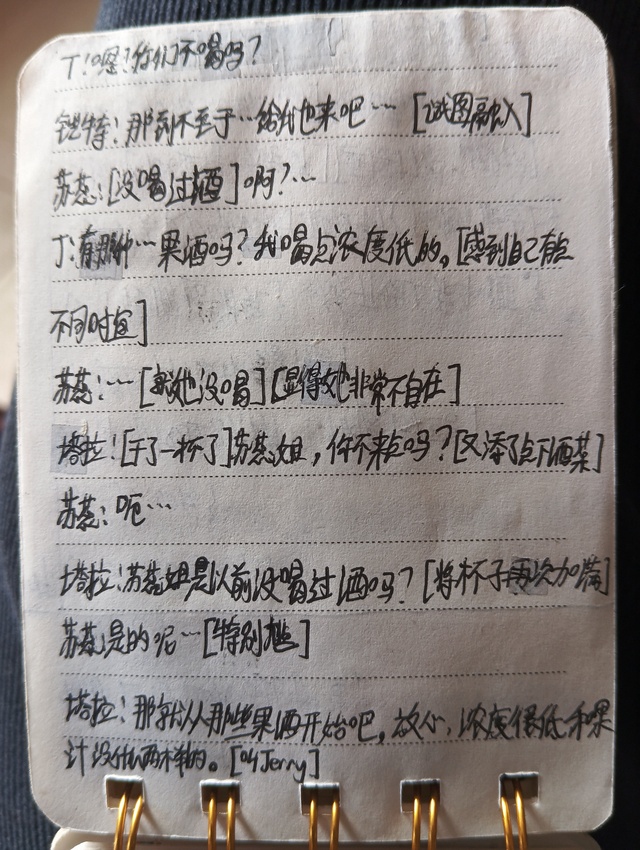 丁:嗯?你们不喝吗?
锐特:那到不至于…给我也来吧…[试图融入]
苏蕊:[没喝过酒]啊?…
丁:有那种…果酒吗?我喝点浓度低的。[感到自己有点
不同时宜]
苏蕊:…[就她没喝][显得她非常不自在]
塔拉:[干了一杯了]苏蕊姐,你不来点吗?[又添了点下酒菜]
苏蕊:呃…
塔拉:苏蕊姐是以前没喝过酒吗?[将杯子再次加满]
苏蕊:是的呢…[特别尬]
塔拉:那就从那些果酒开始吧,放心,浓度很低和果
汁没什么两样的。[Jerry]